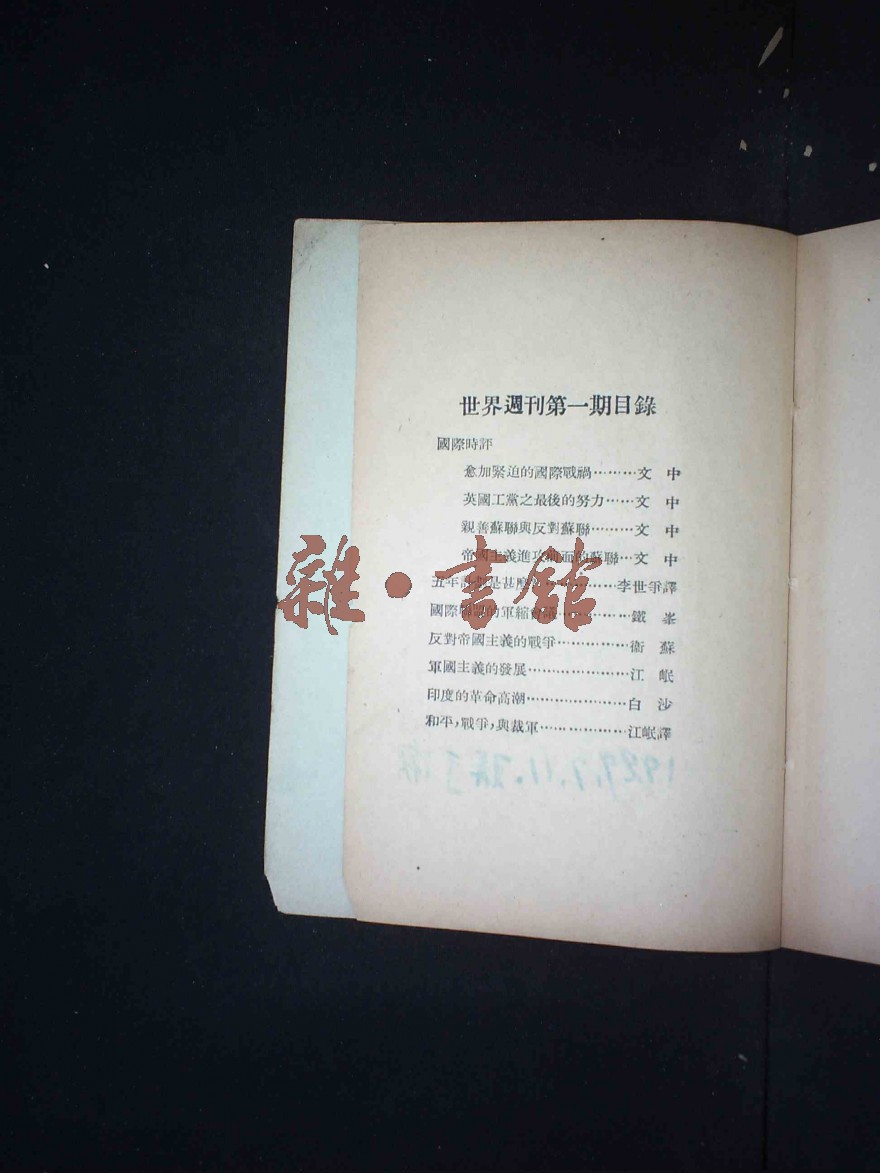 世界週刊第一期目錄
國際時評
愈加緊迫的國際戰禍………文 中
英國工黨之最後的努力……文 中
親善蘇聯與反對蘇聯………文 中
帝國主義進攻前面的蘇聯…文 中
五年計劃是甚麼……………李世爭譯
國際聯盟的軍縮會議…………鐵 峯
反對帝國主義的戰爭…………衞 蘇
軍國主義的發展………………江 岷
印度的革命高潮………………白 沙
和平，戰爭，與裁軍……………江岷譯
雜·書館